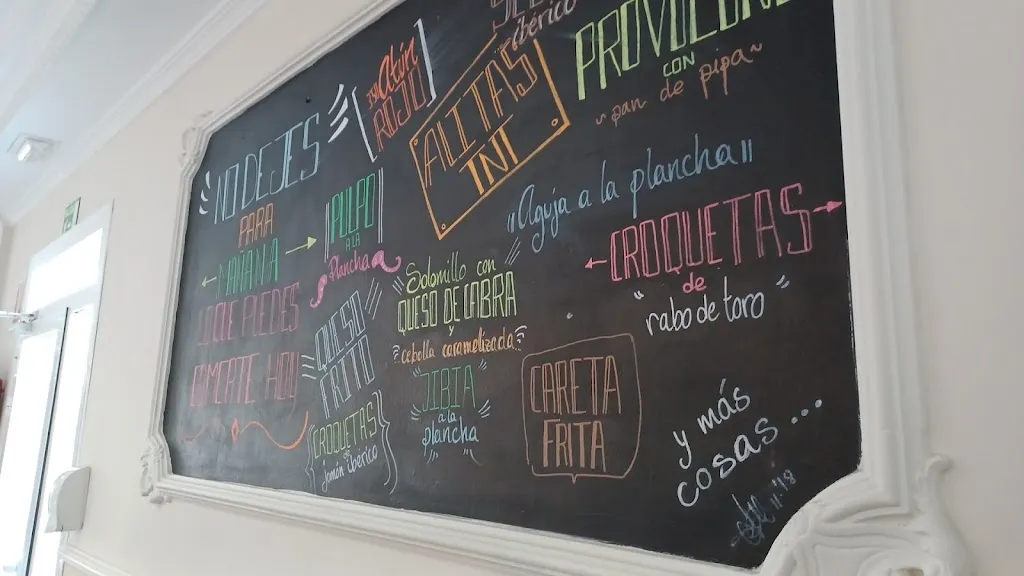 NO DEJES
PARA
MAÑANA
LO QUE PUEDES
COMERTE HOY
Atún
ROJO
PULPO
A LA
Plancha
QUESO
FRITO
CROQUETAS
DE
jamón iberico
ibérico
ALITAS
TNT
Solomillo con
QUESO DE CABRA
y
cebolla caramelizada
JIBIA
a la
plancha
CON
~ pan de pipa ~
"Aguja a la plancha"
CROQUETAS
de
"rabo de toro"
CARETA
FRITA
y más
cosas...
11-'18